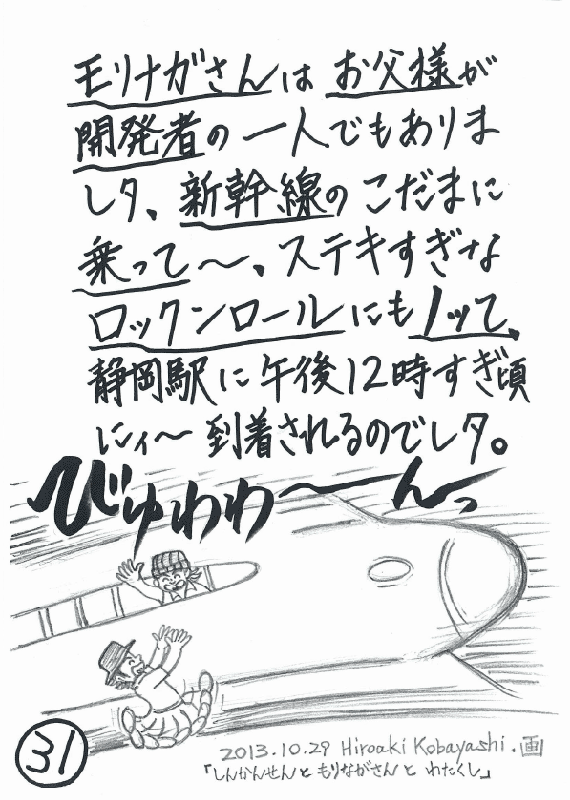 モリナガさんは お父様が
開発者の 一人でもありま
しタ、新幹線の こだまに
乗って〜、ステキすぎな
ロックンロールにもノッて、
静岡駅に 午後12時すぎ頃
にィ〜 到着されるのでしタ。
びゅわわ〜んっ
31
2013.10.29 Hiroaki Kobayashi.画
「しんかんせんと もりながさんと わたくし」